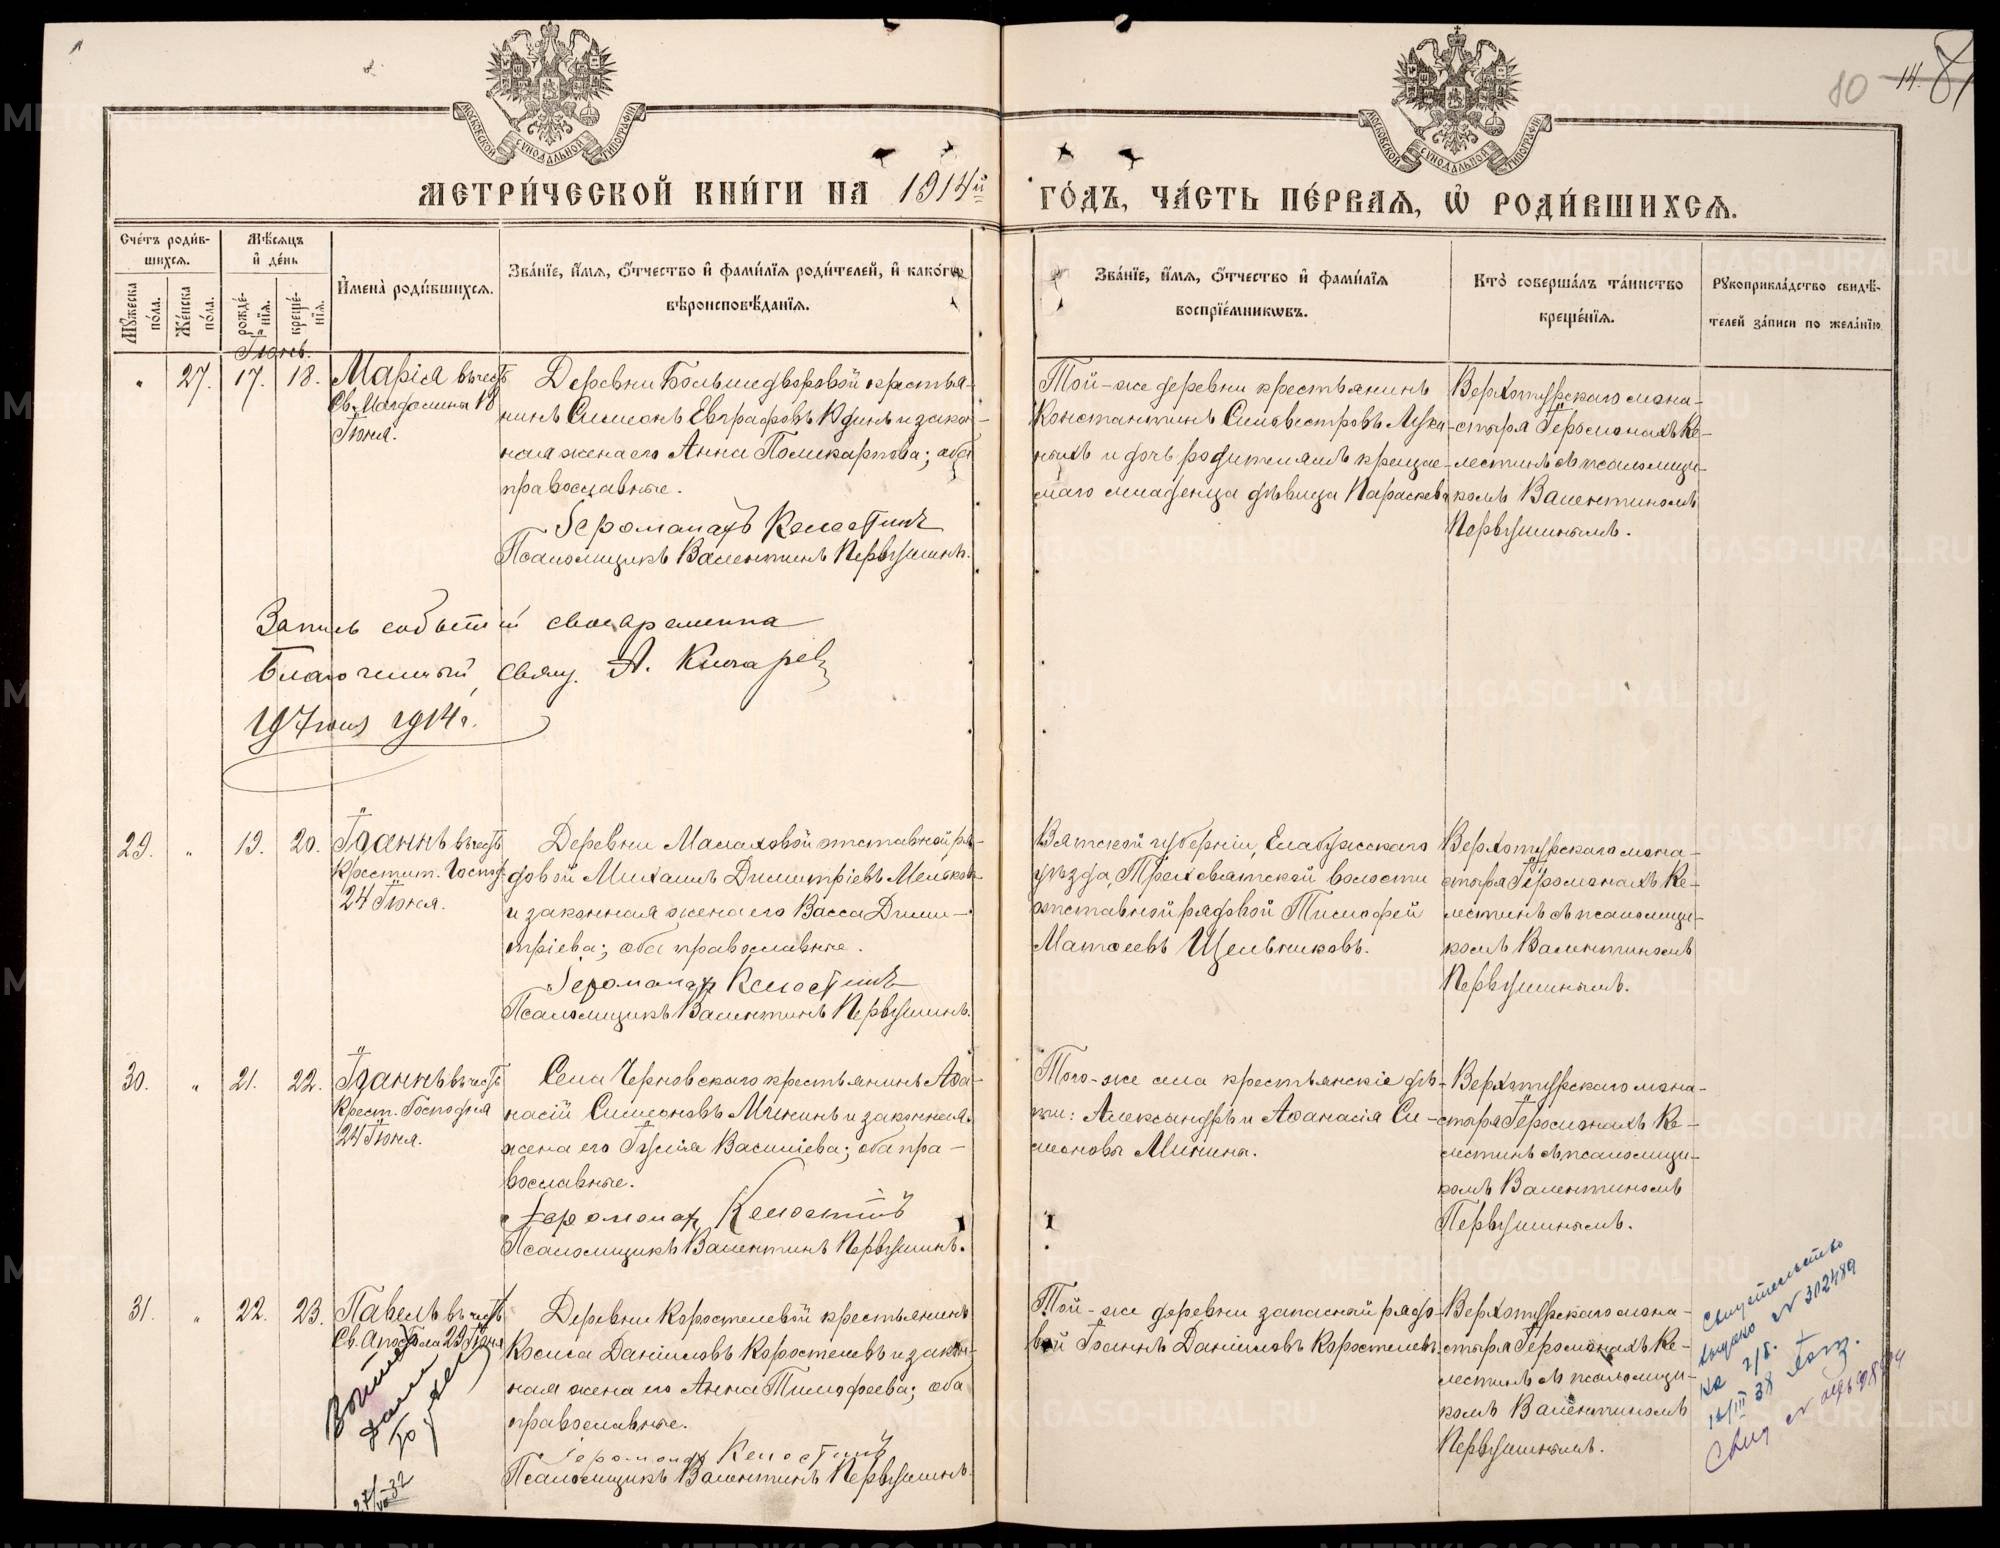 80 14. 81
МОСКОВСКОЙ СѴНОДАЛЬНОЙ ТИПОГРАФІИ
МОСКОВСКОЙ СѴНОДАЛЬНОЙ ТИПОГРАФІИ
МЕТРИ́ЧЕСКОЙ КНИ́ГИ НА 1914й
ГО́ДЪ, ЧА́СТЬ ПЕ́РВАЯ, Ѡ РОДИ́ВШИХСЯ.
Сче́тъ роди́вшихся.
Му́жеска по́ла.
Же́нска по́ла.
Мѣ́сяцъ и де́нь
рожде́нїя.
креще́нїя.
Имена̀ роди́вшихся.
Зва́нїе, и́мя, о́тчество и фами́лїя роди́телей, и како́гѡ
вѣроисповѣ́данїя.
Зва́нїе, и́мя, о́тчество и фами́лїя
воспрїе́мникѡвъ.
Кто̀ соверша́лъ та́инство
креще́нїя.
Рукоприкла́дство свидѣ́-
телей за́писи по жела́нїю.
Іюнь.
27. 17. 18.
Марія въ честь
Св. Магдалины 18
Іюня.
Деревни Большедворовой крестья-
нинъ Симеонъ Евграфовъ Юдинъ и закон-
ная жена его Анна Поликарпова; оба
православные.
Іеромонахъ Келестинъ
Псаломщикъ Валентинъ Первушинъ.
Той-же деревни крестьянинъ
Константинъ Сильвестровъ Лука-
ныхъ и дочь родителямъ крещае-
маго младенца дѣвица Параскева
Верхотурскаго мона-
стыря Іеромонахъ Ке-
лестинъ съ псаломщи-
комъ Валентиномъ
Первушинымъ.
Запись событій своевременна
Благочинный свящ. А.
19 Іюня 1914 г.
29. 19. 20.
Іоаннъ въ честь
Крестит. Господ.
24 Іюня.
Деревни Малаховой отставной ря-
довой Михаилъ Димитріевъ Мельков
и законная жена его Васса Дими-
тріева; оба православные.
Іеромонах Келестинъ
Псаломщикъ Валентинъ Первушинъ.
Вятской губерніи, Елабужскаго
уѣзда, Трехсвятской волости
отставной рядовой Тимофей
Матѳеевъ Щельчиковъ.
Верхотурскаго мона-
стыря Іеромонахъ Ке-
лестинъ съ псаломщи-
комъ Валентиномъ
Первушинымъ.
30. 21. 22.
Іоаннъ въ честь
Крест. Господня
24 Іюня.
Села Черновскаго крестьянинъ Аѳа-
насій Симеоновъ Мининъ и законная
жена его Іулія Василіева; оба пра-
вославные.
Іеромонах Келестинъ
Псаломщикъ Валентинъ Первушинъ.
Того-же села крестьянскіе дѣ-
ти: Александръ и Аѳанасія Си-
меоновы Минины.
Верхотурскаго мона-
стыря Іеромонахъ Ке-
лестинъ съ псаломщи-
комъ Валентиномъ
Первушинымъ.
31. 22. 23.
Павелъ въ честь
Св. Апостола 29 Іюня
27/VIII-32
Деревни Коростелевой крестьянинъ
Косма Даніиловъ Коростелевъ и закон-
ная жена его Анна Тимофеева; оба
православные.
Іеромонах Келестинъ
Псаломщикъ Валентинъ Первушинъ.
Той-же деревни запасной рядо-
вой Іоаннъ Даніиловъ Коростелевъ.
Верхотурскаго мона-
стыря Іеромонахъ Ке-
лестинъ съ псаломщи-
комъ Валентиномъ
Первушинымъ.
Свидетельство
выдано № 302489